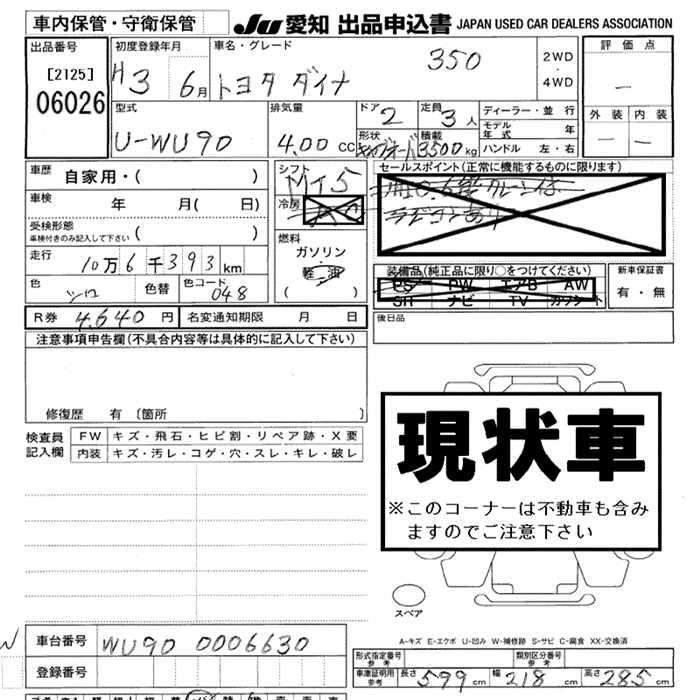 車内保管・守衛保管
JU 愛知 出品申込書 JAPAN USED CAR DEALERS ASSOCIATION
出品番号
[2125]
06026
初度登録年月
H3 6月
車名・グレード
トヨタ ダイナ 350
2WD
・
4WD
評価点
—
外装 内装
— —
型式
U-WU90
排気量
4.00 CC
ドア 2
形状
定員 3人
積載 3500 kg
ディーラー・並行
モデル年式 年
ハンドル 左・右
車歴 自家用・( )
車検 年 月( 日)
受検形態
車検付きのみ記入して下さい ( )
走行 10万6千393km
色 シロ 色替 色コード 048
シフト
MT5
冷房
燃料
ガソリン
・
軽油
( )
セールスポイント(正常に機能するものに限ります)
ラジコンあり
装備品(純正品に限り○をつけてください)
PS PW エアB AW
SR ナビ TV カワシート
新車保証書
有・無
R券 4,640 円 名変通知期限 月 日
後日品
注意事項申告欄(不具合内容等は具体的に記入して下さい)
修復歴 有 〔箇所 〕
検査員
記入欄
FW キズ・飛石・ヒビ割・リペア跡・X要
内装 キズ・汚レ・コゲ・穴・スレ・キレ・破レ
現状車
※このコーナーは不動車も含み
ますのでご注意下さい
スペア
A-キズ E-エクボ U-凹み W-補修跡 S-サビ C-腐食 XX-交換済
車台番号 WU90 0006630
登録番号
形式指定番号
参考
類別区分番号
参考
車庫証明用
参考
長さ 599 cm 幅 218 cm 高さ 285 cm